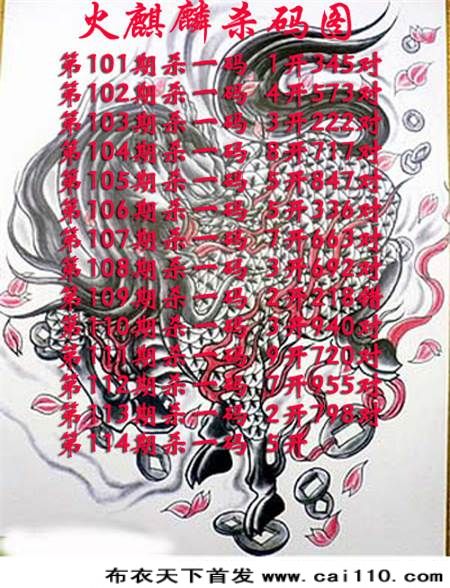 火麒麟杀码图
第101期杀一码 1开345对
第102期杀一码 4开573对
第103期杀一码 3开222对
第104期杀一码 8开717对
第105期杀一码 5开847对
第106期杀一码 5开336对
第107期杀一码 7开663对
第108期杀一码 3开692对
第109期杀一码 2开218错
第110期杀一码 3开940对
第111期杀一码 9开720对
第112期杀一码 7开955对
第113期杀一码 2开798对
第114期杀一码 5开
布衣天下首发 www.cai110.com